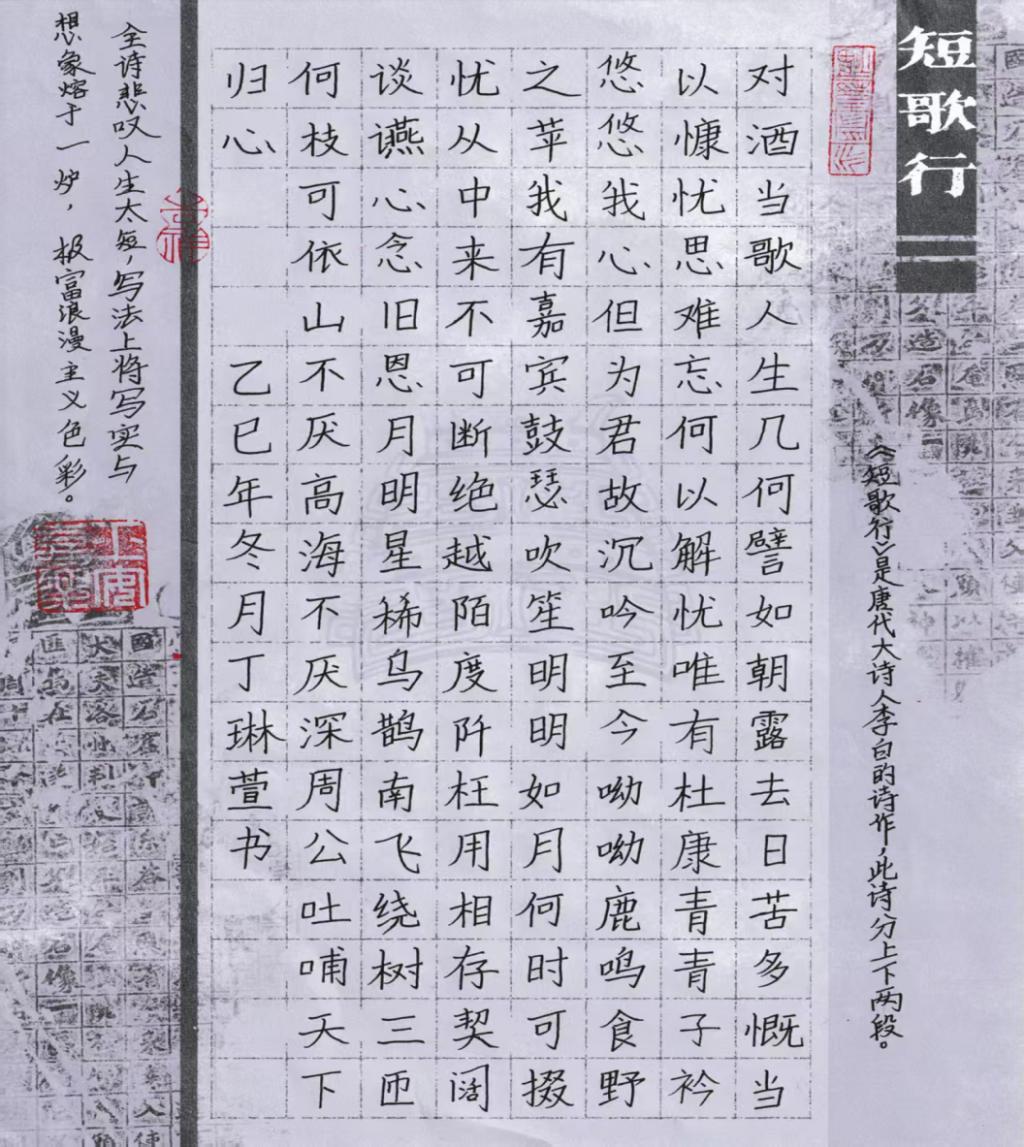 短歌行
《短歌行》是唐代大诗人李白的诗作，此诗分上下两段。
对酒当歌人生几何譬如朝露去日苦多慨当
以慷忧思难忘何以解忧唯有杜康青青子衿
悠悠我心但为君故沉吟至今呦呦鹿鸣食野
之苹我有嘉宾鼓瑟吹笙明明如月何时可掇
忧从中来不可断绝越陌度阡枉用相存契阔
谈䜩心念旧恩月明星稀乌鹊南飞绕树三匝
何枝可依山不厌高海不厌深周公吐哺天下
归心
乙巳年冬月丁琳萱书
全诗悲叹人生太短，写法上将写实与
想象熔于一炉，极富浪漫主义色彩。
吉祥